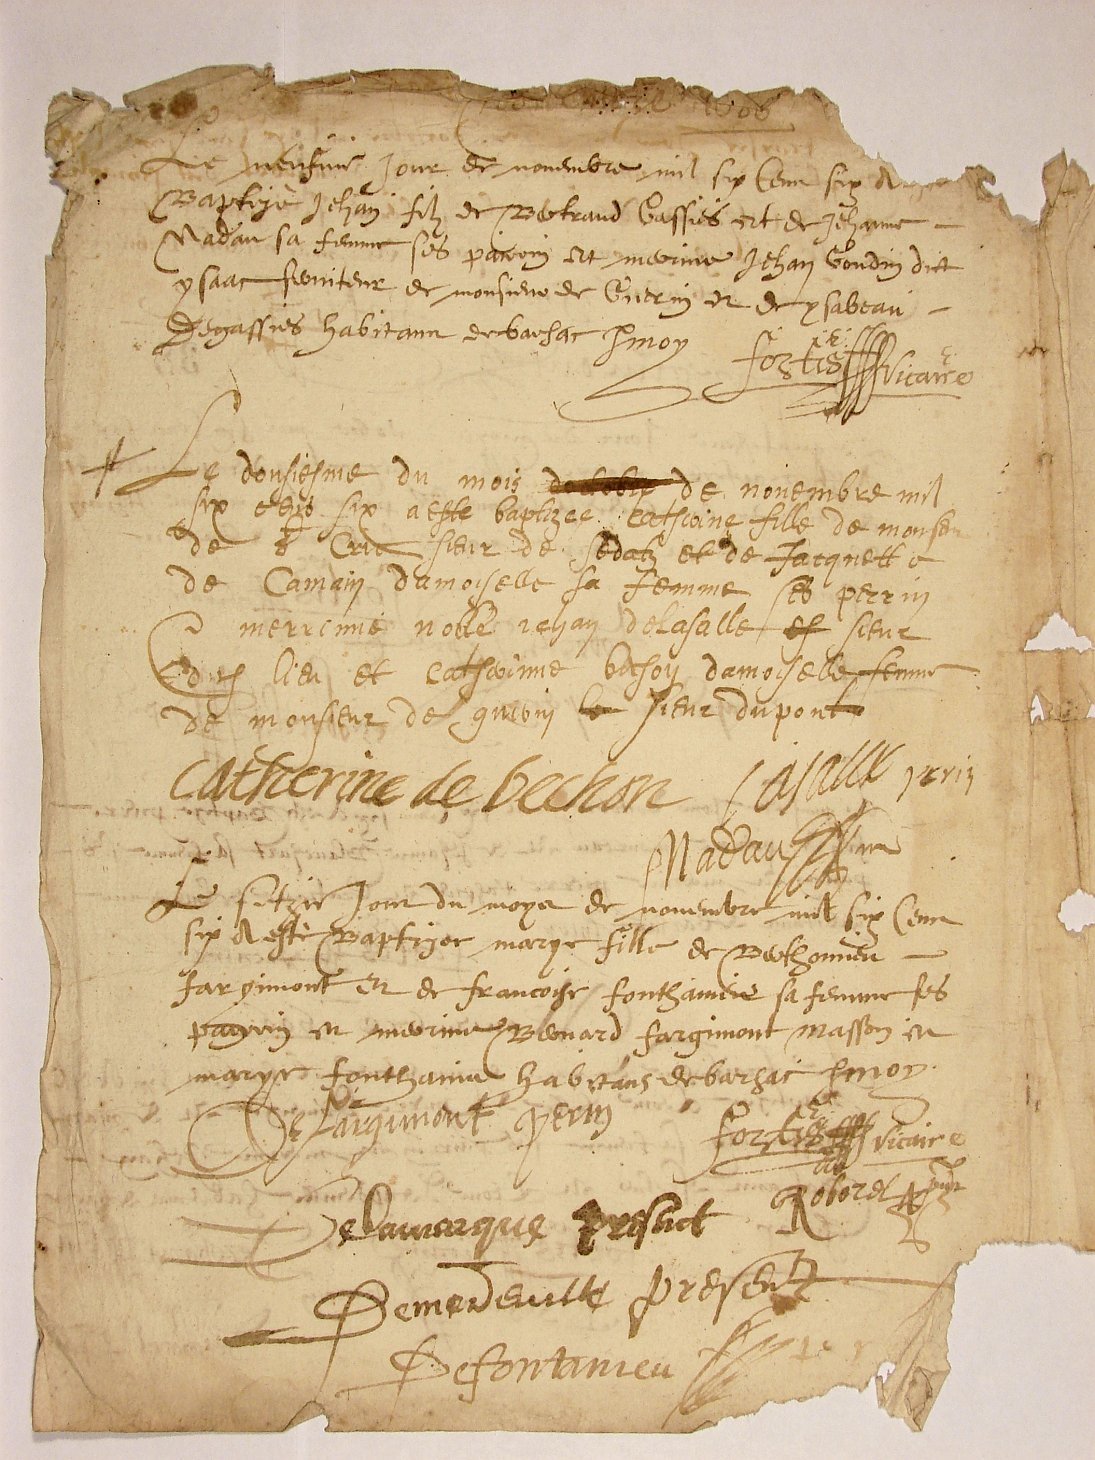 1606
Le neufvie Jour de novembre mil six Cens six A
Baptizé Jehan filz de Bertrand Gassies et de Jehanne
Nadau sa femme ses parrin et merrine Jehan Goudin dict
ysaac serviteur de monsieur de Guerin et de ysabeau
Degassies habitans de barsac Pmoy
fortis vicaire
Le dousiesme du mois de novembre mil
six cens six a este baptizee catherine fille de monser
de Cric sieur de sedatz et de Jacquette
de Camain damoiselle sa femme ses perrin
merrinne noble iehan delasalle sieur
dud lieu et catherinne bechon damoiselle femme
de monsieur de guerin sieur dupont
Catherine de bechon Lasalle perin
Nadau
Le setzie Jour du moys de novembre mil six Cens
six A esté Baptizee marye fille de Berthomieu
fargimont et de francoise fonthaineie sa femme ses
parrin et merrine Bernard fargimont masson et
marye fonthainie habitans de barsac Pmoy
De fargimont perin
fortis vicaire
Roborel
Delamarque present
Demerdeuille present
Defontanieu